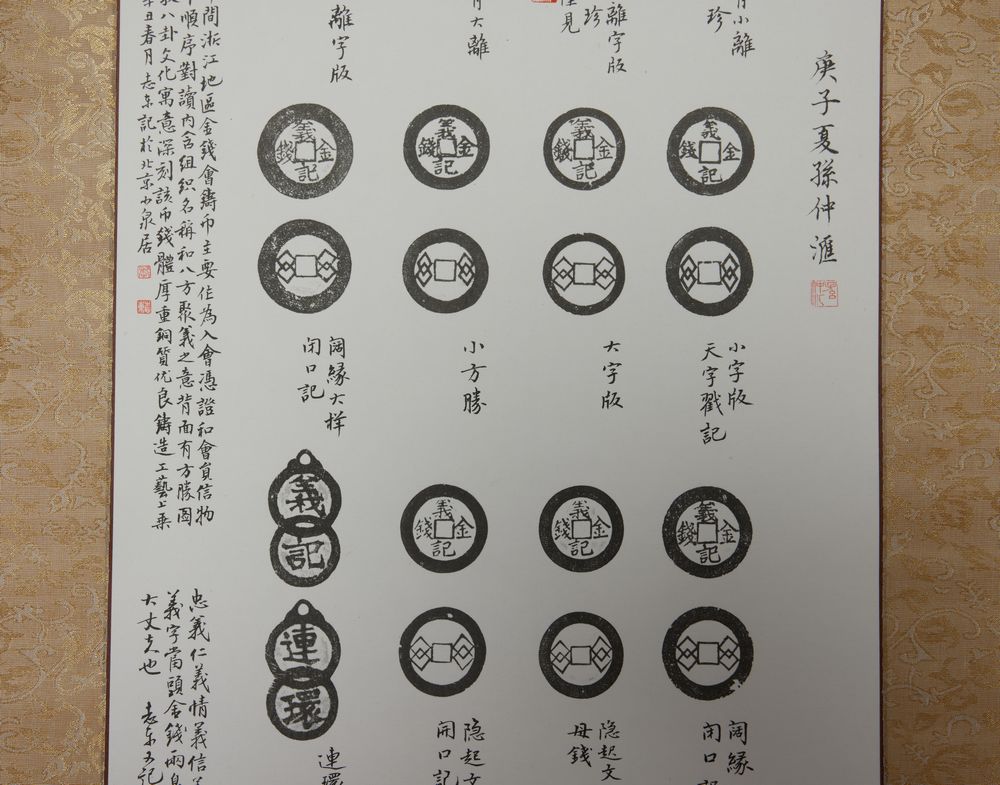 庚子夏孫仲滙
小離
珍
離字版
珍
僅見
大離
離字版
義記金錢
義記金錢
義記金錢
義記金錢
小字版
天字戳記
大字版
小方勝
闊緣大样
闭口記
義記金錢
義記金錢
義記金錢
義記
連環
闊緣
闭口記
隐起文
母錢
隐起文
開口記
連環
間浙江地區金錢會鑄币主要作為入會憑證和會員信物
順序對讀内含組织名稱和八方聚義之意背面有方勝图
八卦文化寓意深刻該币錢體厚重銅質优良鑄造工藝上乘
辛丑春月志东記於北京小泉居
忠義仁義情義信
義字當頭舍錢兩
大丈夫也 志东又記